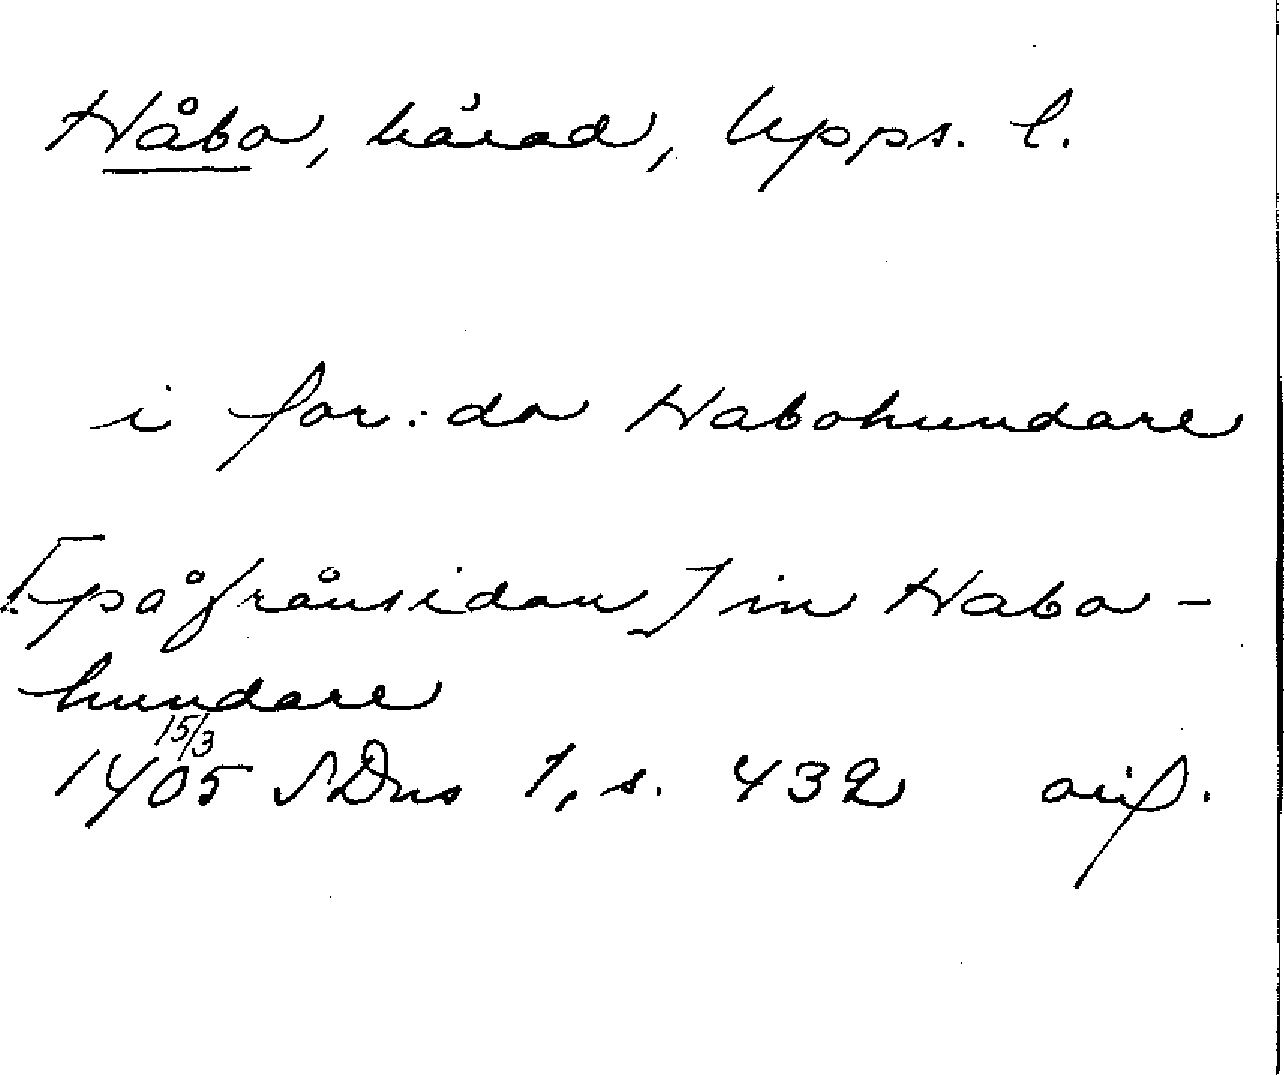 Håbo, härad, Upps. l.
i for:da Habohundare
[på frånsidan] in Habo-
hundare
15/3
1405 SDns 1, s. 432 avs.